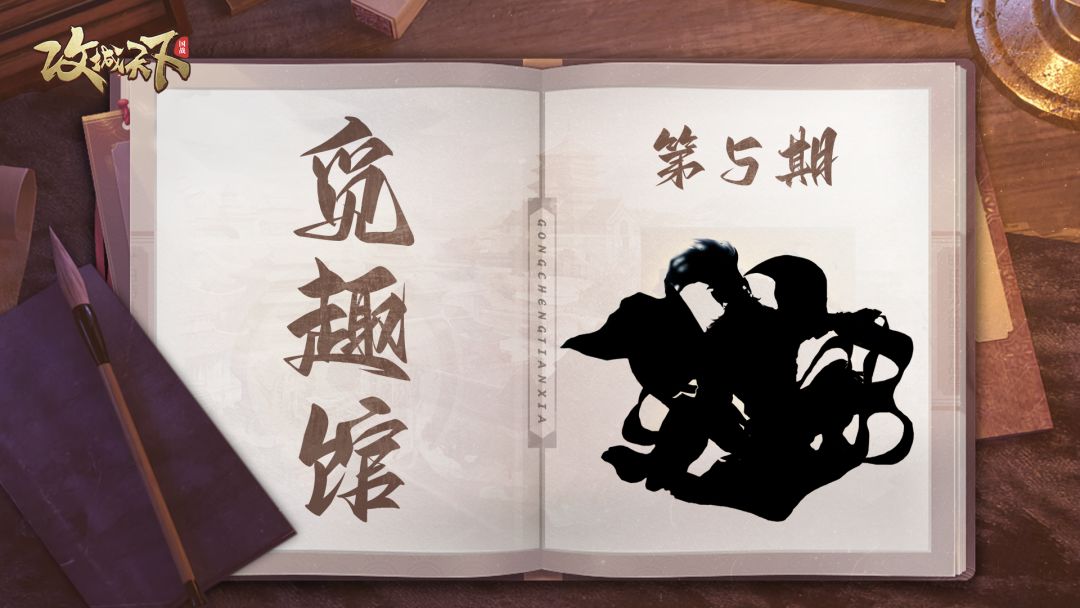 攻城天下
国战
觅趣馆
第5期
GONGCHENGTIANXIA